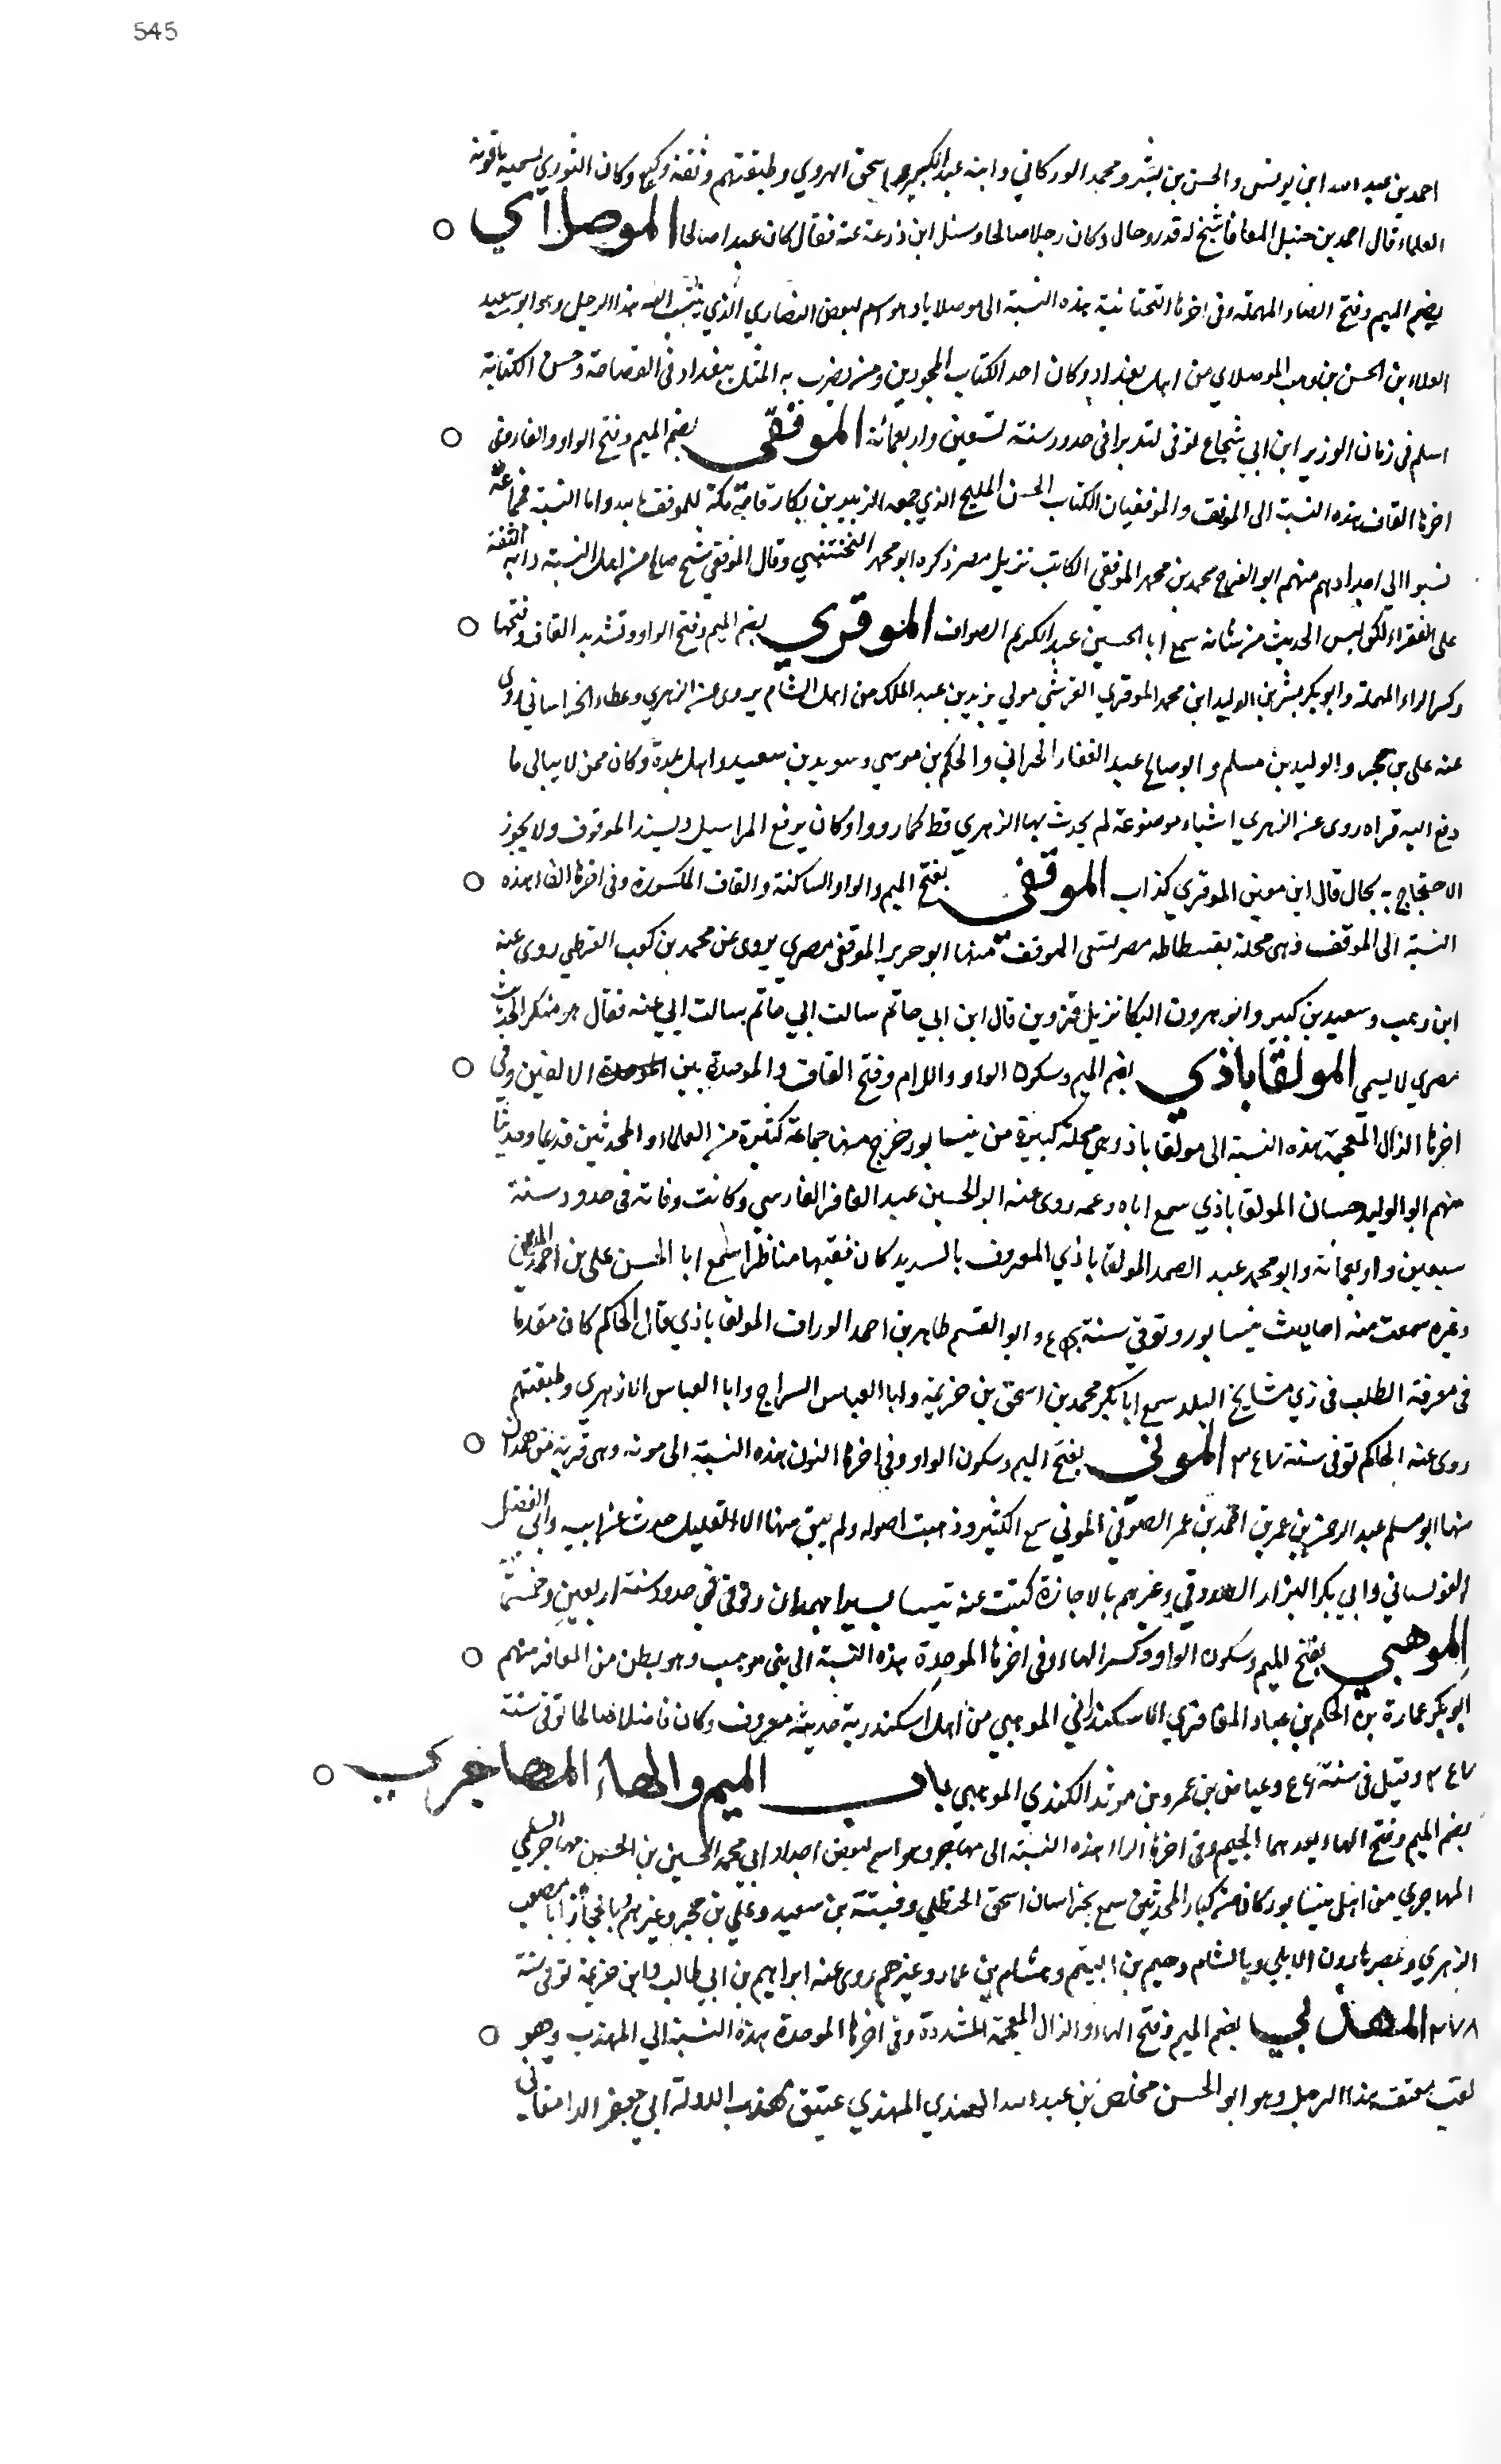 545
احمد بن عبد الله ابن يونس والحسن بن بشر ومحمد الوركاني وابنه عبد الكبير واسحق الهروي وطبقتهم وثقه وكيع وكان الثوري يسميه ياقوتة
العلماء قال احمد بن حنبل المعافا شيخ له قدر وحال وكان رجلا صالحا وسئل ابن زرعة عنه فقال كان عبدا صالحا الموصلائي
بضم الميم وفتح الصاد المهملة وفي اخرها التحتانية هذه النسبة الى موصلايا وهو اسم لبعض النصاري الذي ينتسب اليه هذا الرجل وهو ابو سعيد
العلاء بن الحسن بن وهب الموصلاي من اهل بغداد وكان احد الكتاب المجودين ومن يضرب به المثل ببغداد في الفصاحة وحسن الكتابة
اسلم في زمان الوزير ابن ابي شجاع توفي في حدود سنة تسعين واربعمائة الموفقي بضم الميم وفتح الواو والفا وفي
اخرها القاف هذه النسبة الى الموفق والموفقيات الكتاب الحسن المليح الذي جمعه الزبير بن بكار قاضي مكة للموفق بالله واما النسبة فجماعة
نسبوا الي اجدادهم منهم ابو الفرج محمد بن محمد الموفقي الكاتب نزيل مصر ذكره ابو محمد النخشبي وقال الموفقي شيخ صالح من اهل السنة دابه النفقة
على الفقراء لكن ليس الحديث من شانه سمع ابا الحسين عبد الكريم الصواف الموقري بضم الميم وفتح الواو وتشديد القاف وفتحها
وكسر الراء المهملة وابو بكر بشر بن الوليد ابن محمد الموقري القرشي مولي يزيد بن عبد الملك من اهل الشام يروي عن الزهري وعطاء الخراساني روى
عنه علي بن حجر والوليد بن مسلم وابو صالح عبد الغفار الحراني والحكم بن موسي وسويد بن سعيد واهل بلده وكان ممن لا يبالي ما
دفع اليه قراه روى عن الزهري اشياء موضوعة لم يحدث بها الزهري قط كما رووا وكان يرفع المراسيل ويسند الموقوف ولا يجوز
الاحتجاج به بحال قال ابن معين الموقري كذاب الموقفي بفتح الميم والواو الساكنة والقاف المكسورة وفي اخرها الفا هذه
النسبة الى الموقف وهي محلة بفسطاط مصر تسمى الموقف منها ابو حرير الموقفي مصري يروي عن محمد بن كعب القرظي روى عنه
ابن وهب وسعيد بن كثير وابو هرون البكا نزيل قزوين قال ابن ابي حاتم سالت ابي عنه فقال هو منكر الحديث
مصري لا يسمي المولقاباذي بضم الميم وسكون الواو واللام وفتح القاف والموحدة بين الالفين وفي
اخرها الذال المعجمة هذه النسبة الى مولقاباذ وهي محلة كبيرة من نيسابور خرج منها جماعة كثيرة من العلماء والمحدثين قديما وحديثا
منهم ابو الوليد حسان المولقاباذي سمع اباه وعمه روى عنه ابو الحسين عبد الغافر الفارسي وكانت وفاته في حدود سنة
سبعين واربعمائة وابو محمد عبد الصمد المولقاباذي المعروف بالسديد كان فقيها مناظرا سمع ابا الحسن علي بن احمد المديني
وغيره سمعت منه احاديث بنيسابور وتوفي سنة وابو القسم طاهر بن احمد الوراق المولقاباذي قال الحاكم كان مقدما
في معرفة الطلب في زي مشايخ البلد سمع ابا بكر محمد بن اسحق بن خزيمة وابا العباس السراج وابا العباس الازهري وطبقتهم
روى عنه الحاكم توفي سنة ٣٤٧ الموني بفتح الميم وسكون الواو وفي اخرها النون هذه النسبة الى مونه وهي قرية من همدان
منها ابو مسلم عبد الرحمن بن عمر بن احمد بن عمر الصوفي الموني سمع الكثير وذهبت اصوله ولم يبق منها الا القليل حدث عن ابيه وابي الفضل
القومساني وابي بكر البزار الصدوقي وغيرهم بالاجازة كتبت عنه شيئا يسيرا بهمدان وتوفي في حدود سنة اربعين وخمسمائة
الموهبي بفتح الميم وسكون الواو وكسر الهاء وفي اخرها الموحدة هذه النسبة الى بني موهب وهو بطن من المعافر منهم
ابو بكر عمارة بن الحكم بن عباد المعافري الاسكندراني الموهبي من اهل اسكندرية حديثه معروف وكان فاضلا صالحا توفي سنة
وقيل في سنة وعياض بن عمرو بن مرثد الكندي الموهبي باب الميم والهاء المهاجري
بضم الميم وفتح الهاء بعدهما الجيم وفي اخرها الرا هذه النسبة الى مهاجر وهو اسم لبعض اجداد ابي محمد الحسين بن الحسين مهاجر السلمي
المهاجري من اهل نيسابور كان من كبار المحدثين سمع بخراسان اسحق الحنظلي وقتيبة بن سعيد وعلي بن حجر وغيرهم وبالحجاز ابا مصعب
الزهري وبمصر هارون الايلي وبالشام دحيم بن اليتيم وهشام بن عمار وغيرهم روى عنه ابراهيم بن ابي طالب وابن خزيمة توفي سنة
المهذبي بضم الميم وفتح الهاء والذال المعجمة المشددة وفي اخرها الموحدة هذه النسبة الي المهذب وهو
لقب معتق هذا الرجل وهو ابو الحسن مخلص بن عبد الله الهندي المهذبي عتيق مهذب الدولة ابي جعفر الدامغاني